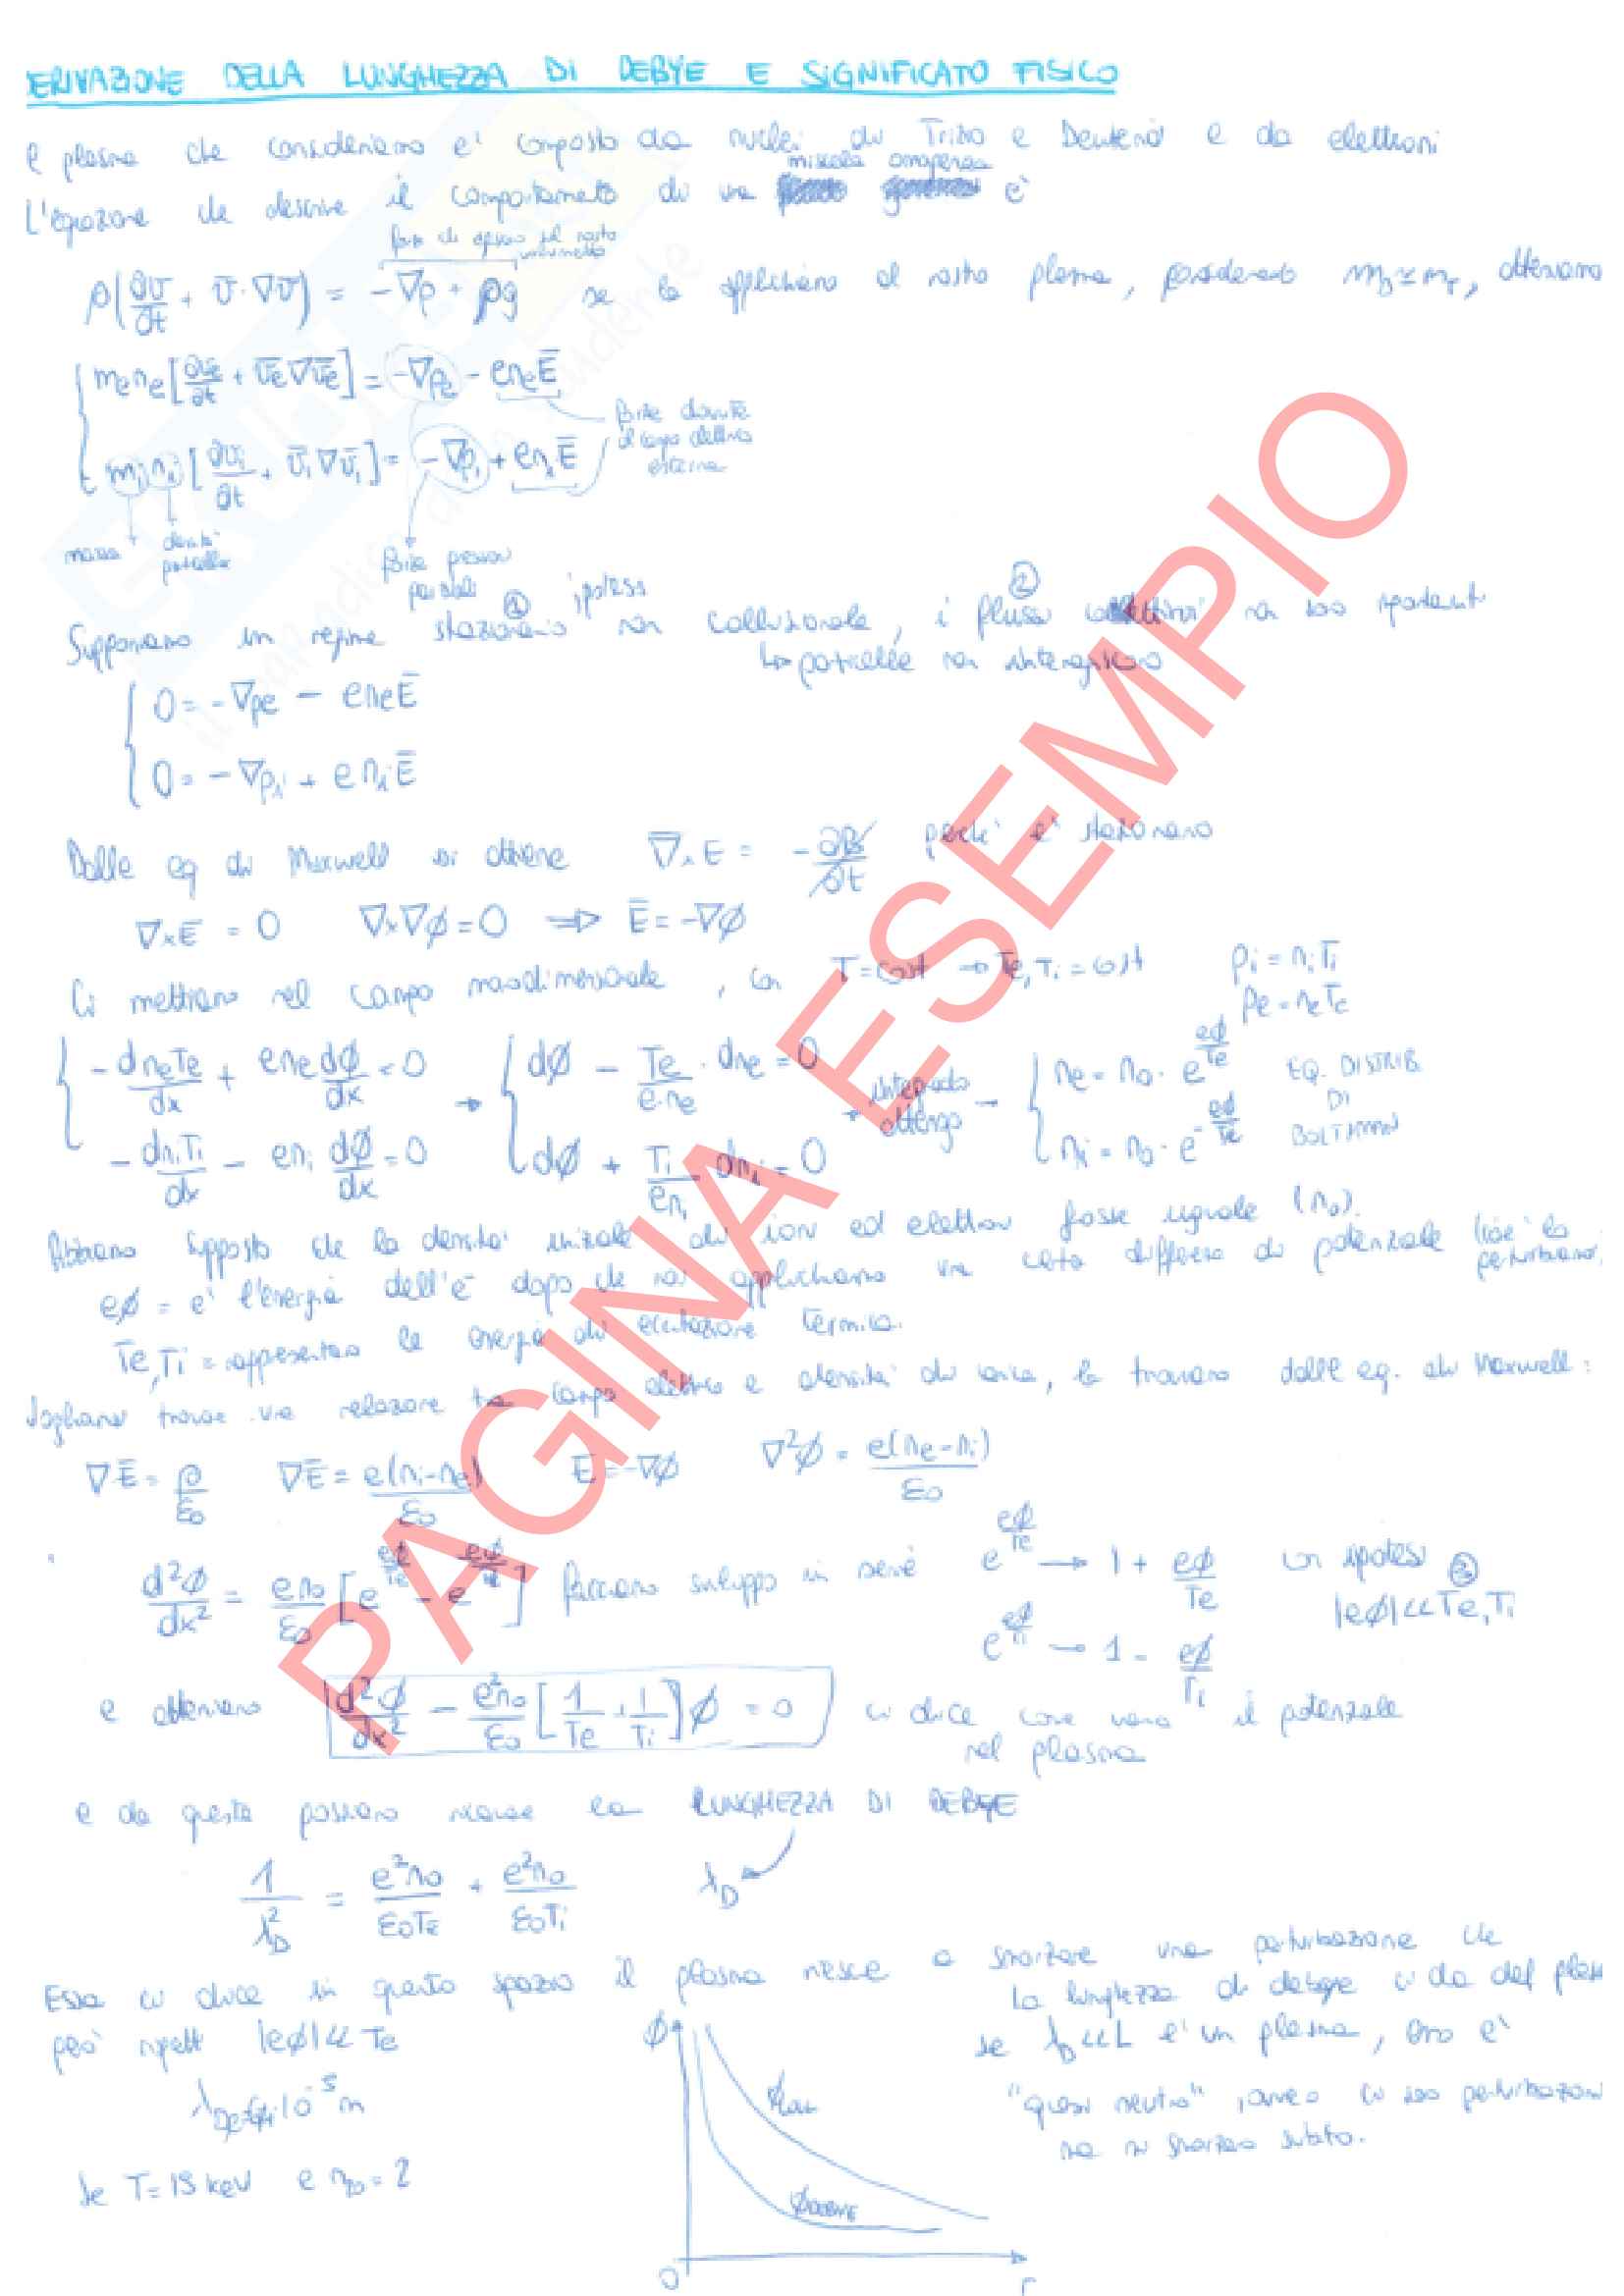 DERIVAZIONE DELLA LUNGHEZZA DI DEBYE E SIGNIFICATO FISICO
Il plasma che consideriamo e' composto da nuclei di Trizio e Deuterio e da elettroni
miscela omogenea
L'equazione che descrive il comportamento di una è
forze che agiscono sul nostro volumetto
ρ(∂v̄/∂t + v̄·∇v̄) = -∇p + ρg se la applichiamo al nostro plasma, considerando m_D ≃ m_T, otteniamo
m_e n_e [∂v̄_e/∂t + v̄_e ∇v̄_e] = -∇p_e - e n_e Ē
forze dovute al campo elettrico esterno
m_i n_i [∂v̄_i/∂t + v̄_i ∇v̄_i] = -∇p_i + e n_i Ē
massa densità particelle forze pressioni parziali
① ipotesi ②
Supponiamo un regime stazionario non collisionale, i flussi collettivi non sono importanti
↳ particelle non interagiscono
0 = -∇p_e - e n_e Ē
0 = -∇p_i + e n_i Ē
Dalle eq di Maxwell si ottiene ∇̄×E = -∂B/∂t perché e' stazionario
∇×Ē = 0 ∇×∇φ = 0 ⇒ Ē = -∇φ
Ci mettiamo nel campo monodimensionale, con T = cost → Te, Ti = cost p_i = n_i T_i
p_e = n_e T_e
-d n_e T_e/dx + e n_e dφ/dx = 0 → dφ - T_e/(e·n_e) · dn_e = 0 → integrando ottengo → n_e = n_0 · e^(eφ/Te) EQ. DISTRIB DI BOLTZMANN
-d n_i T_i/dx - e n_i dφ/dx = 0 dφ + T_i/(e n_i) dn_i = 0 n_i = n_0 · e^(-eφ/Te)
Abbiamo supposto che la densità iniziale di ioni ed elettroni fosse uguale (n_0).
eφ = e' l'energia dell'e⁻ dopo che noi applichiamo una certa differenza di potenziale (cioè lo perturbiamo)
Te, Ti = rappresentano le energie di eccitazione termica.
Vogliamo trovare una relazione tra campo elettrico e densità di carica, la troviamo dalle eq. di Maxwell:
∇Ē = ρ/ε0 ∇Ē = e(n_i - n_e)/ε0 Ē = -∇φ ∇²φ = e(n_e - n_i)/ε0
d²φ/dx² = e n_0/ε0 [e^(eφ/Te) - e^(-eφ/Ti)] Facciamo sviluppo in serie e^(eφ/Te) → 1 + eφ/Te con ipotesi ③
|eφ| << Te, Ti
e^(eφ/Ti) → 1 - eφ/Ti
e otteniamo d²φ/dx² - e²n_0/ε0 [1/Te + 1/Ti] φ = 0 ci dice come varia il potenziale
nel plasma
e da questa possiamo ricavare la LUNGHEZZA DI DEBYE
1/λ_D² = e²n_0/ε0Te + e²n_0/ε0Ti λ_D
Essa ci dice in quanto spazio il plasma riesce a smorzare una perturbazione che
però rispetti |eφ| << Te
La lunghezza di debye ci dà del plas
se λ_D << L e' un plasma, ovvero e'
"quasi neutro", ovvero ci sono perturbazioni
ma si smorzano subito.
10⁻⁵ m
se T = 15 keV e n_20 = 2
φ
φ_COUL
φ_DEBYE
0
r
PAGINA ESEMPIO